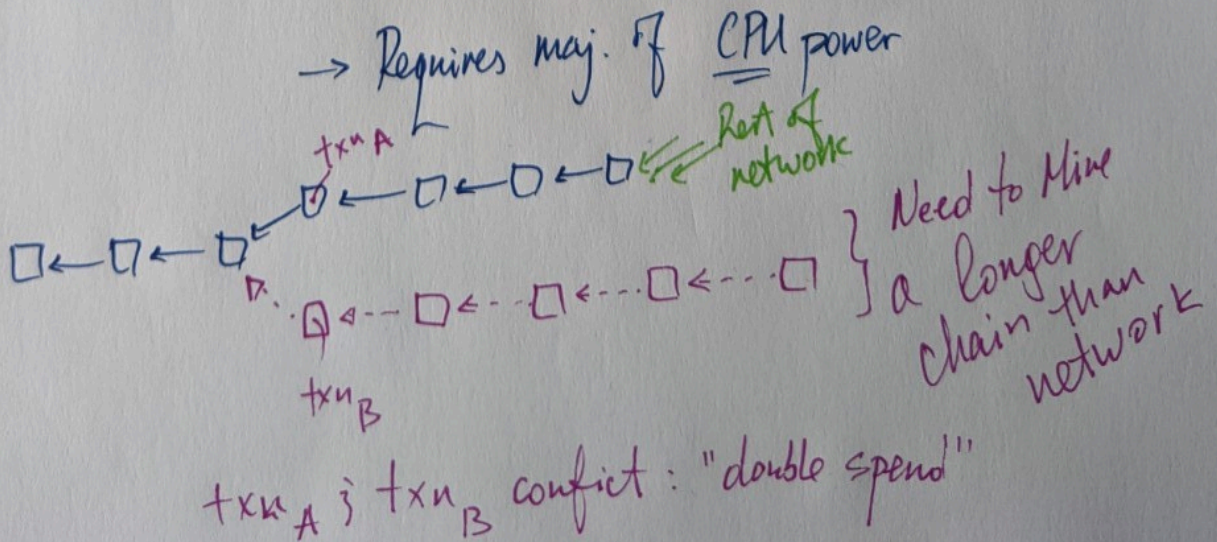 → Requires maj. of CPU power
txn A
Rest of
network
Need to Mine
a longer
chain than
network
txn B
txn A ; txn B confict : "double spend"